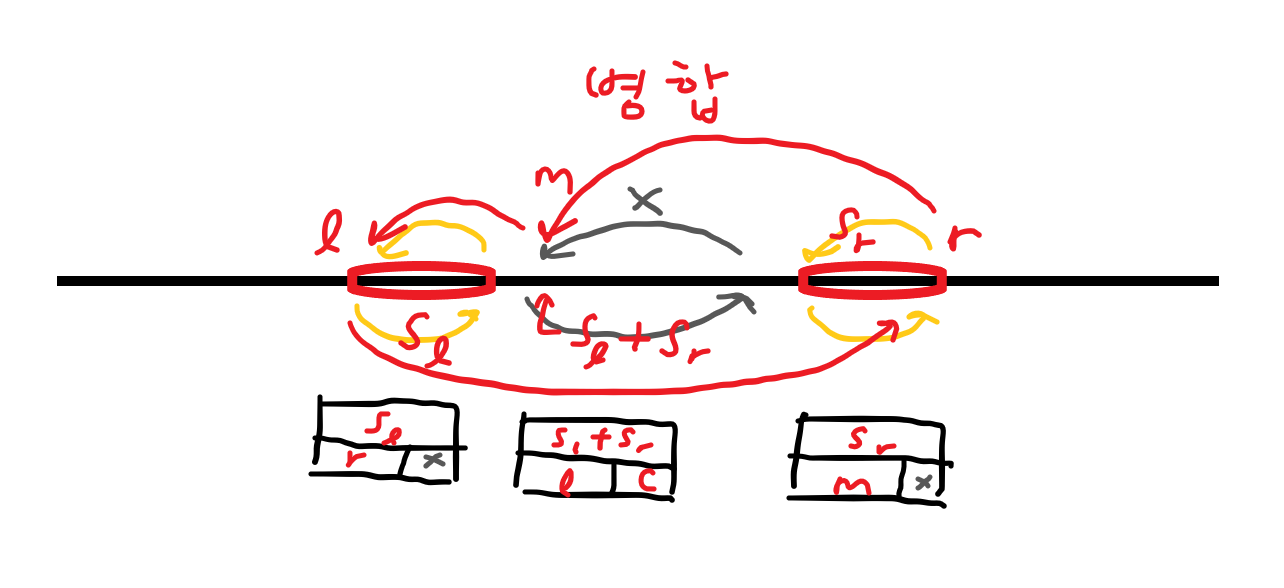 영합
m
x
l
S_r
r
S_l
S_l + S_r
S_l
r x
S_l + S_r
l c
S_r
m x